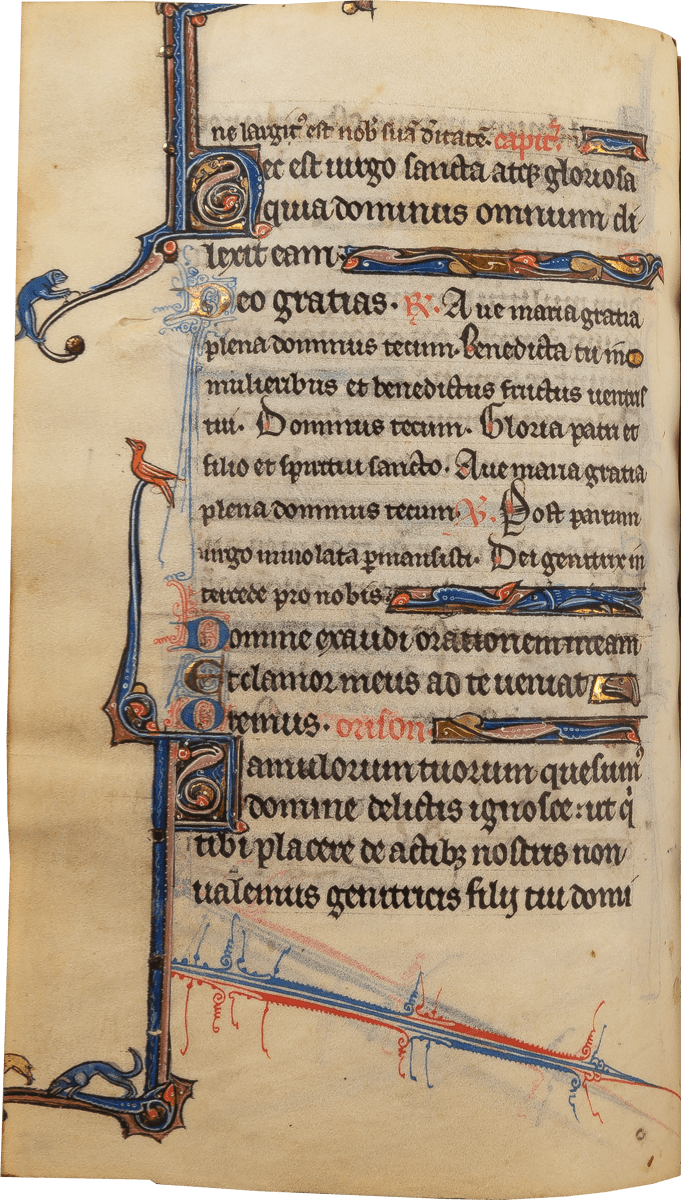 ne largit᷒ est nob̄ suā dītatē. capit᷒
Hec est uirgo sancta atqꝫ gloriosa
quia dominus omnium di
lexit eam.
Deo gratias. ℟. Aue maria gratia
plena dominus tecum. Benedicta tu in
mulieribus et benedictus fructus uentris
tui. Dominus tecum. Gloria patri et
filio et spiritui sancto. Aue maria gratia
plena dominus tecum. ℣. Post partum
uirgo inuiolata ꝑmansisti. Dei genitrix in
tercede pro nobis
Domine exaudi orationem meam
Et clamor meus ad te ueniat
Oremus. orison
Famulorum tuorum quesum᷒
domine delictis ignosce: ut q̇
tibi placere de actibꝫ nostris non
ualemus genitricis filij tui domi